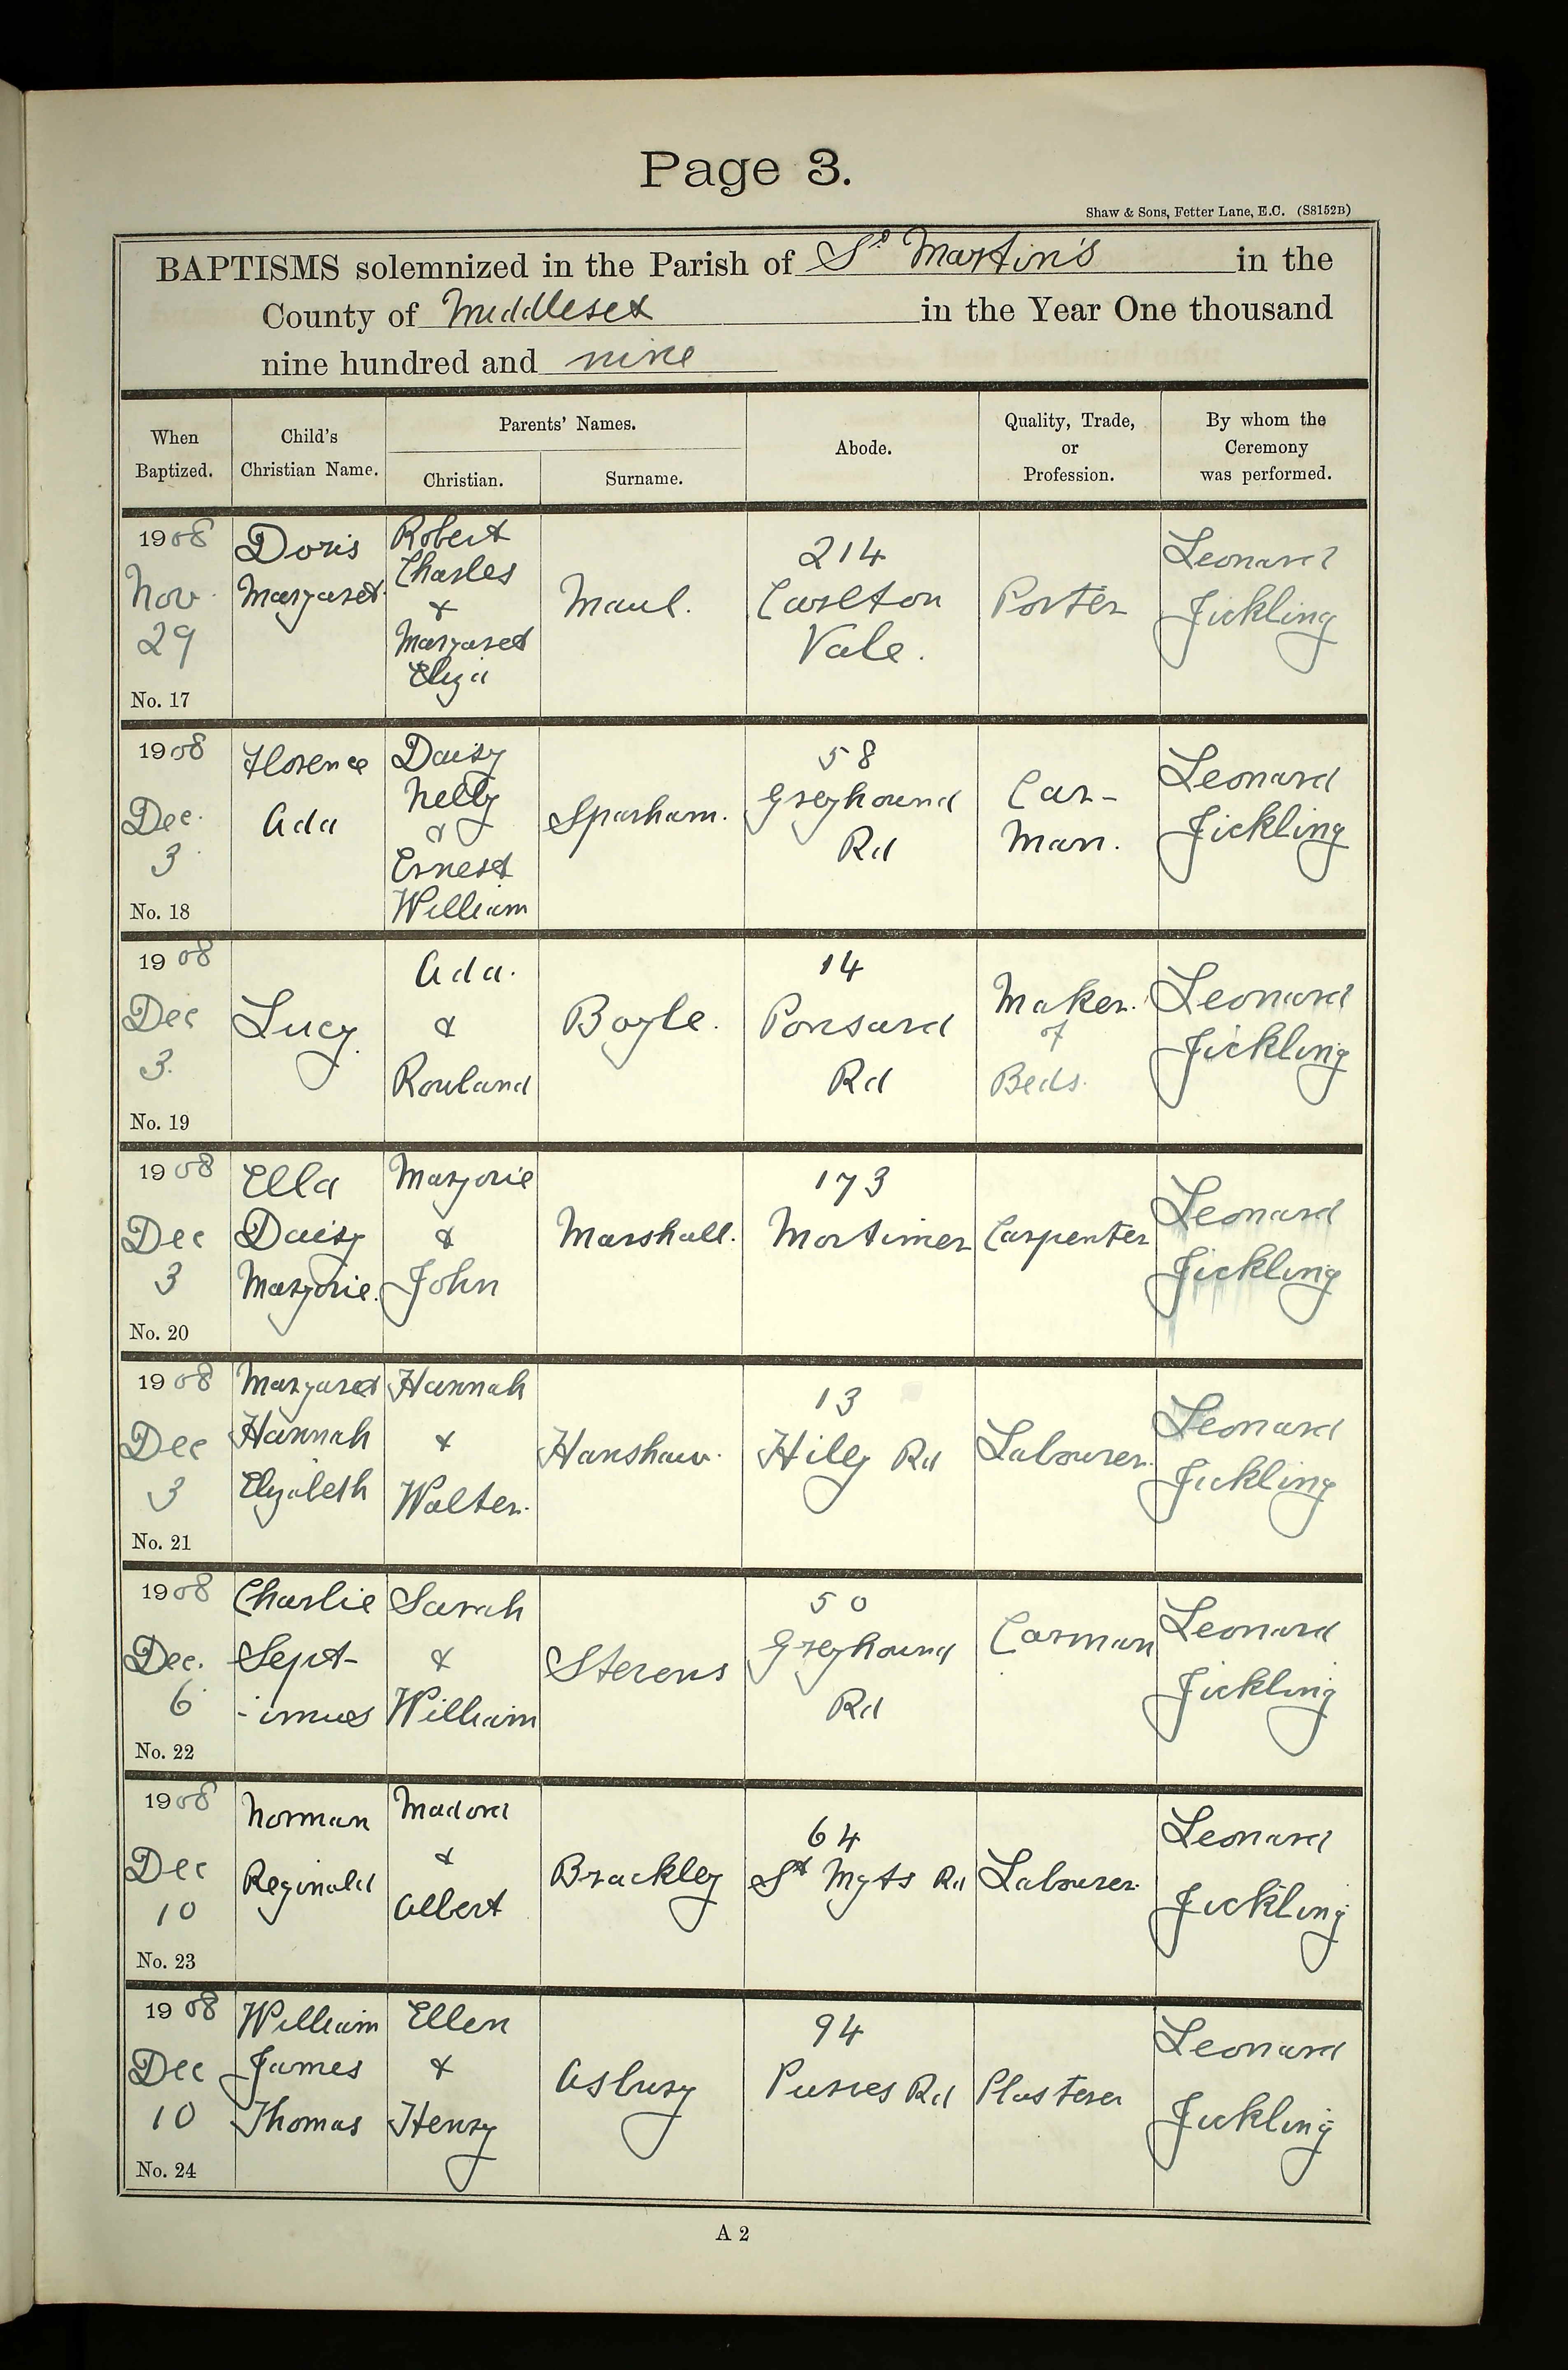 Page 3.
Shaw & Sons, Fetter Lane, E.C. (S8152B)
BAPTISMS solemnized in the Parish of St Martin's in the
County of Middlesex in the Year One thousand
nine hundred and nine
When Baptized.
Child's Christian Name.
Parents' Names.
Christian.
Surname.
Abode.
Quality, Trade, or Profession.
By whom the Ceremony was performed.
1908
Nov.
29
No. 17
Doris
Margaret
Robert
Charles
&
Margaret
Eliza
Maul.
214
Carlton
Vale.
Porter
Leonard
Jickling
1908
Dec.
3
No. 18
Florence
Ada
Daisy
Nelly
&
Ernest
William
Sparham.
58
Greyhound
Rd
Car-
man.
Leonard
Jickling
1908
Dec
3.
No. 19
Lucy.
Ada.
&
Rowland
Boyle.
14
Ponsard
Rd
Maker.
of
Beds.
Leonard
Jickling
1908
Dec
3
No. 20
Ella
Daisy
Marjorie.
Marjorie
&
John
Marshall.
173
Mortimer
Carpenter
Leonard
Jickling
1908
Dec
3
No. 21
Margaret
Hannah
Elizabeth
Hannah
&
Walter.
Hanshaw.
13
Hiley Rd
Labourer.
Leonard
Jickling
1908
Dec.
6
No. 22
Charlie
Sept-
-imus
Sarah
&
William
Stevens
50
Greyhound
Rd
Carman
Leonard
Jickling
1908
Dec
10
No. 23
Norman
Reginald
&
Albert
Brackley
64
St Mgts Rd
Labourer
Leonard
Jickling
1908
Dec
10
No. 24
William
James
Thomas
Ellen
&
Henry
Asbury
94
Purves Rd
Plasterer
Leonard
Jickling
A 2